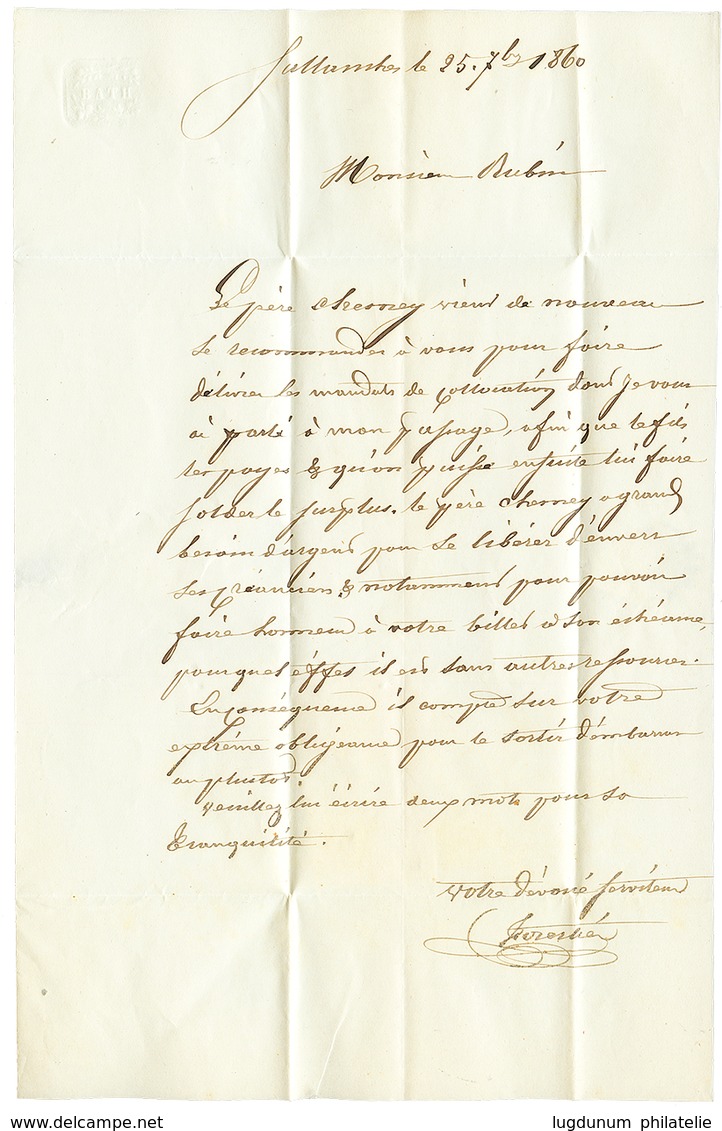 Sallanches le 25. 7bre 1860
Monsieur Rubin
Le père Chesney vient de nouveau
se recommander à vous pour faire
délivrer les mandats de collocation dont je vous
ai parlé à mon passage, afin que le fils
les payes & qu'on puisse ensuite lui faire
solder le surplus. le père Chesney a grand
besoin d'argent pour se libérer d'envers
ses créanciers & notamment pour pouvoir
faire honneur à votre billet à son échéance,
pour quel éffet il est sans autres ressources.
En conséquence il compte sur votre
extrême obligeance pour le sortir d'embarras
au plustot.
Veuillez lui écrire deux mots pour sa
tranquilité.
Votre dévoué serviteur
Forestier
lugdunum philatelie